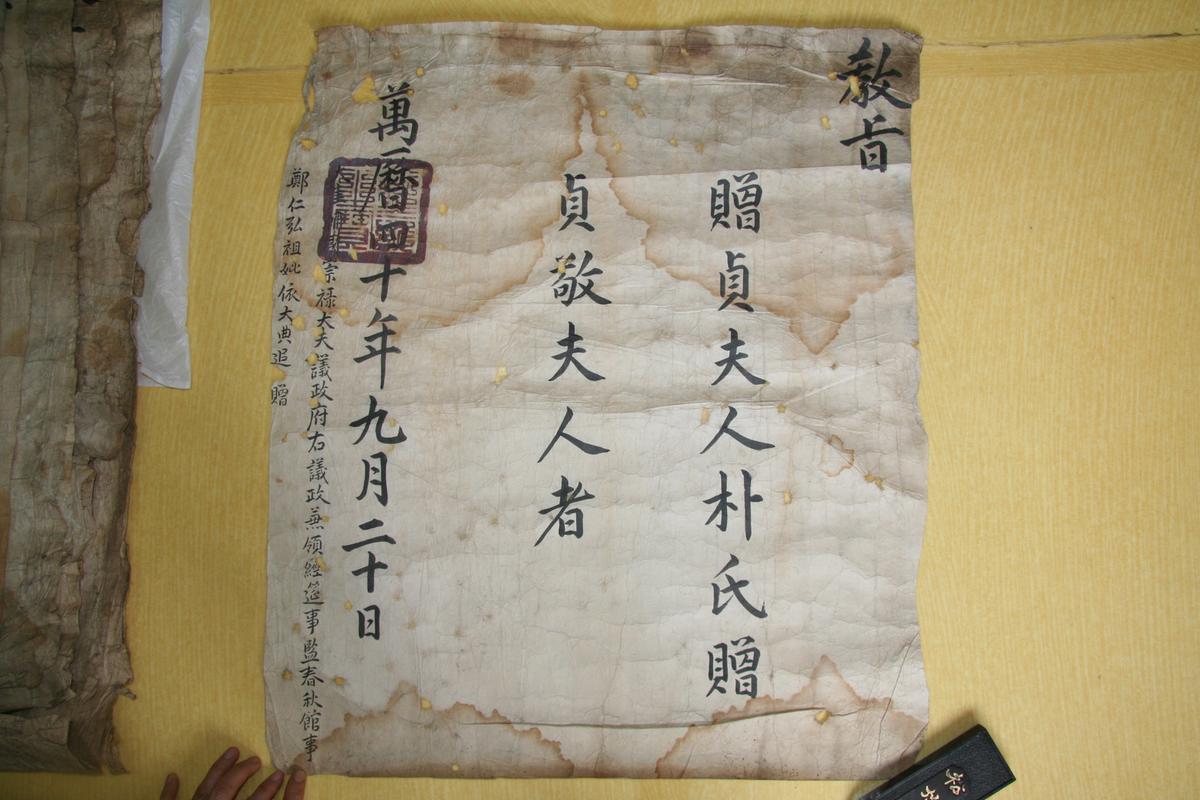 敎旨
贈貞夫人朴氏贈
貞敬夫人者
萬曆四十年九月二十日
崇禄大夫議政府右議政兼領經筵事監春秋館事
鄭仁弘祖妣依大典追贈